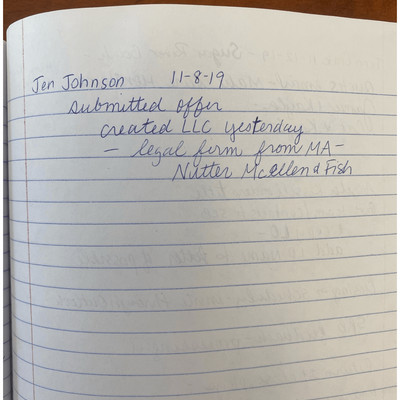 Jen Johnson 11-8-19
submitted offer
created LLC yesterday
- legal firm from MA -
Nutter McClen & Fish